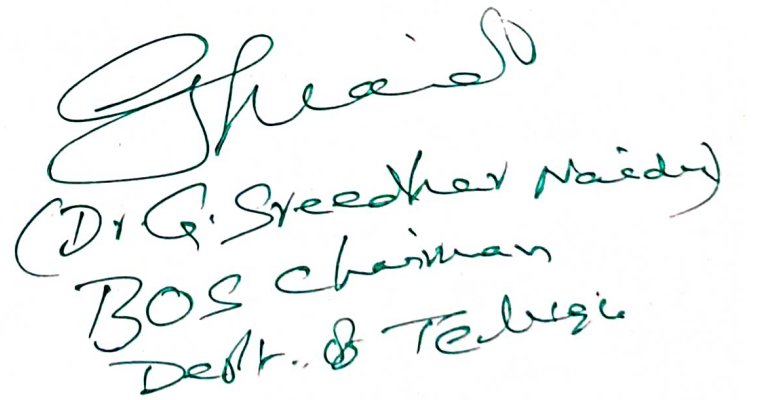 (Dr G. Sreedhar Naidu)
BOS Chairman
Deptt. of Telugu